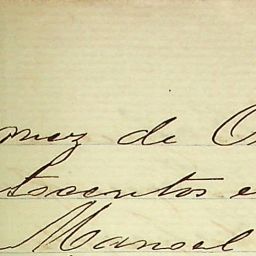 omez de O
tscentos e
Manoel